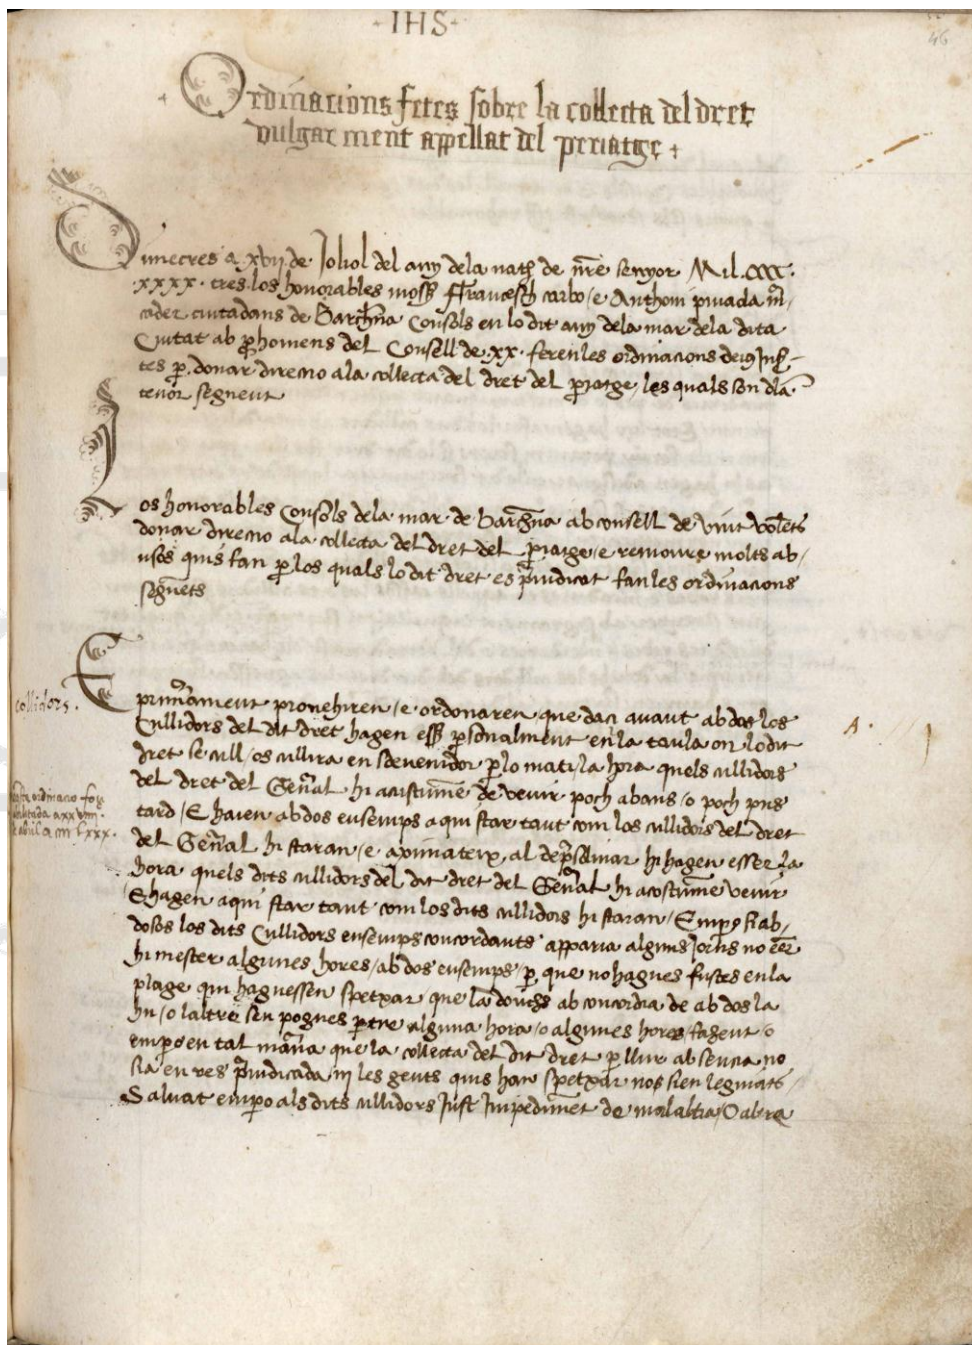 IHS
46
Ordinacions fetes sobre la collecta del dret
vulgarment appellat del periatge +
Dimecres a xvij de Joliol del any dela nath de nre senyor Mil.cccc.
xxxx. tres los honorables moss ffrancesch carbo e Anthoni pujada m
cader ciutadans de Barchna Consols en lo dit any dela mar dela dita
Ciutat ab prohomens del Consell de xx. feren les ordinacions deius
tes p donar direccio ala collecta del dret del priatge les quals son dla
tenor seguent
Los honorables Consols dela mar de barchna ab consell de vint volets
donar direccio ala collecta del dret del priatge e remoure molts ab
usos quis fan p los quals lo dit dret es piudicat fan les ordinacions
seguets
E primament prouehiren e ordonaren que daci auant abdos los
Cullidors del dit dret hagen ess psonalment en la taula on lo dit
dret se cull o es cullira en sdeuenidor p lo mati la hora quels cullidors
del dret del Genal hi acustume de venir poch abans o poch pus
tard E haien abdos ensemps aqui star tant com los cullidors del dret
del Genal hi staran e aximateix al depres dinar hi hagen esser la
hora quels dits cullidors del dit dret del Genal hi acostume venir
E hagen aqui star tant com los dits cullidors hi staran Empo si ab
dosos los dits Cullidors ensemps concordants apparia alguns jorns no eer
hi mester algunes hores abdos ensemps p que no hagues fustes en la
plage qui haguessen spetxar que la donchs ab concordia de abdos la
hu o laltre sen pogues ptre alguna hora o algunes hores fahent o
empo en tal mana que la collecta del dit dret p llur absencia no
sia en res piudicada ni les gents quis han spetxar nos sien leguiats
Saluat empo als dits cullidors just Impedimet de malaltia O altre
collidors.
ordinacio fou
a xxviiij
abril a m lxxx.
A.